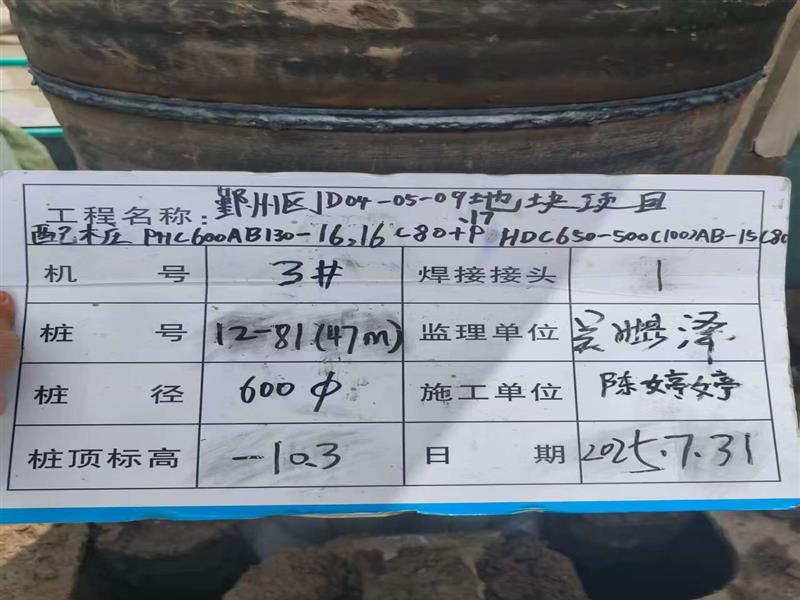 工程名称: 鄞州区JD04-05-09地块项目
.17
PHC600AB130-16,16 C80+P HDC650-500(100)AB-15C80
机 号 3# 焊接接头 1
桩 号 12-81(47m) 监理单位
桩 径 600 φ 施工单位 陈婷婷
桩顶标高 -10.3 日 期 2025.7.31